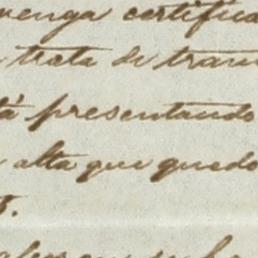 venga certifica
trata de tram
tá presentando
alta que quedo